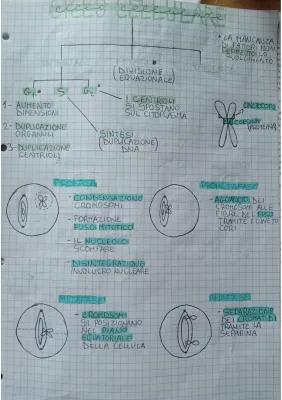 CICLO CELLULARE
• LA MANCANZA
DI FATTORI NON
SVOLGIMENTO
(DIVISIONE
EQUAZIONALE)
G₁ S G₂
I CENTRIOLI
SI SPOSTANO
SUL CITOPLASMA
1- AUMENTO
DIMENSIONI
2- DUPLICAZIONE
ORGANULI
3- DUPLICAZIONE
CENTRIOLI
SINTESI
(DUPLICAZIONE)
DNA
COESINA
(PROTEINA)
PROFASE
- CONDENSAZIONE
CROMOSOMI
- FORMAZIONE
FUSO MITOTICO
- IL NUCLEOLO
SCOMPARE
- DISINTEGRAZIONE
INVOLUCRO NUCLEARE
PROMETAFASE
- AGGANCIO DEI
CROMOSOMI ALLE
FIBRE DEL FUSO
TRAMITE I CINETO
CORI
METAFASE
- CROMOSOMI
SI POSIZIONANO
NEL PIANO
EQUATORIALE
DELLA CELLULA
ANAFASE
- SEPARAZIONE
DEI CROMATIDI
TRAMITE LA
SEPARINA